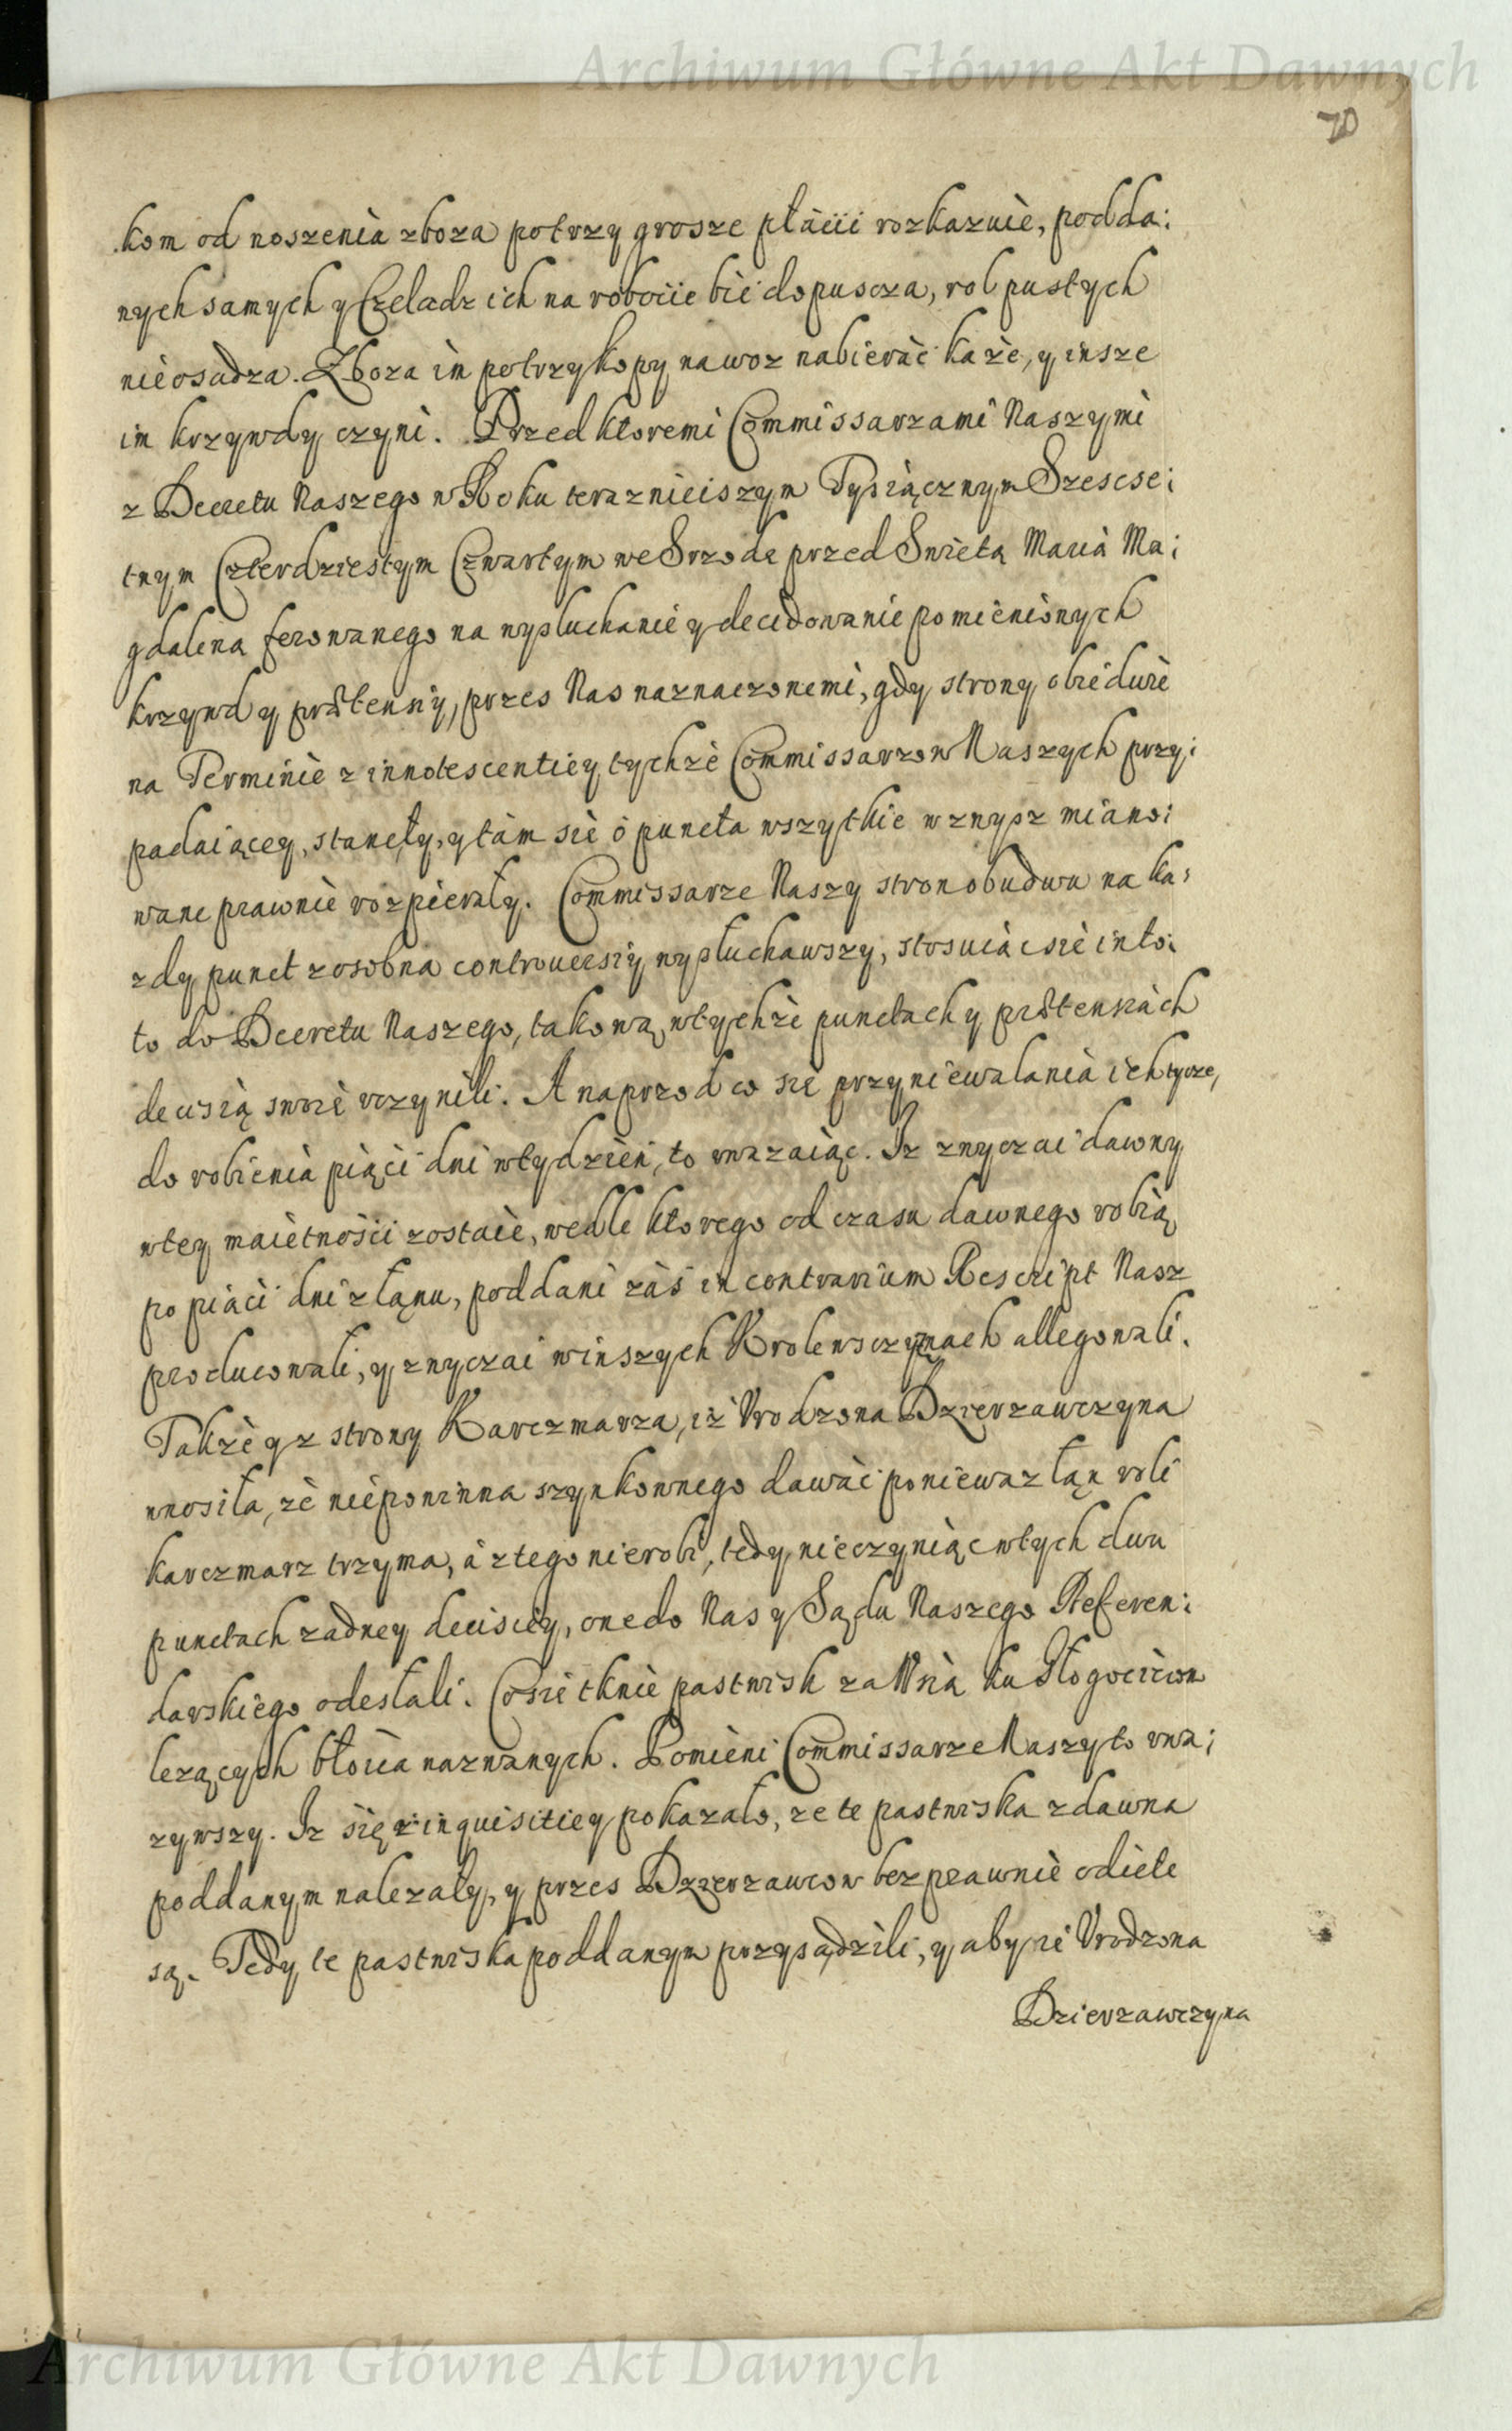 Archiwum Główne Akt Dawnych
70
kom od noszenia zboza potrzy grosze płacić rozkazuie, podda:
nych samych y Czeladz ich na robocie bić dopuscza, rol pustych
nieosadza. Zboza im potrzy kopy na woz nabierać każe, y insze
im krzywdy czyni. Przed ktoremi Commissarzami Naszymi
z Decretu Naszego w Roku teraznieiszym Tysiącznym Szescse:
tnym Czterdziestym Czwartym we Srzodę przed Swietą Marià Ma:
gdalena ferowanego na wysłuchanie y decidowanie pomienionych
krzywd y prætensiy, przes Nas naznaczonemi, gdy strony obiedwie
na Terminie z innotescentiey tychże Commissarzow Naszych przy:
padaiącey, stanęły, y tàm sie ò puncta wszytkie wznysz miano:
wane prawnie rozpierały. Commissarze Naszy stron obudwu na ka:
zdy punct zosobna controuersiy wysłuchawszy, stosuiàc sie in to:
to do Decretu Naszego, takową wtychże punctach y prætensiàch
decisią swoię vczynili. A naprzod co się przyniewalania ich tycze,
do robienia piąci dni wtydzień, to vwazaiąc. Iz zwyczai dawny
wtey maiętności zostaie, wedle ktorego od czasu dawnego robią
po piąci dni złanu, poddani zaś in contrarium Rescript Nasz
producowali, y zwyczai winszych Krolewsczyznach allegowali.
Takze y z strony Karczmarza, iż Vrodzona Dzierzawczyna
wnosiła, że niepowinna szynkownego dawać poniewaz łan roli
karczmarz trzyma, à ztego nierobi, tedy nieczyniąc wtych dwu
punctach zadney decisiey, one do Nas y Sądu Naszego Referen:
darskiego odesłali. Co sie tknie pastwisk za Wsią ku Głogoczcom
lezących błocia nazwanych. Pomieni Commissarze Naszy to vwa:
zywszy. Iz się z inquisitiey pokazało, ze te pastwiska zdawna
poddanym nalezały, y przes Dzierzawcow bezprawnie odięte
są. Tedy te pastwiska poddanym przysądzili, y aby ie Vrodzona
Dzierzawczyna
Archiwum Główne Akt Dawnych